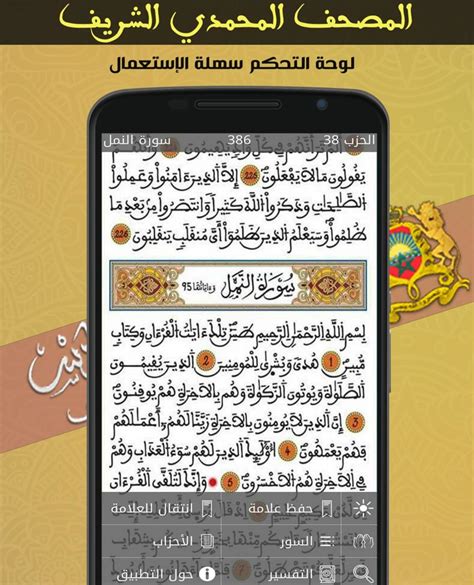 المصحف المحمدي الشريف
لوحة التحكم سهلة الإستعمال
الحزب 38 386 سورة النمل
أَنَّهُمْ فِي كُلِّ وَادٍ يَهِيمُونَ وَأَنَّهُمْ
يَقُولُونَ مَا لَا يَفْعَلُونَ 225 إِلَّا اَلذِينَ ءَامَنُواْ وَعَمِلُواْ
اُلصَّٰلِحَٰتِ وَذَكَرُواْ اُللَّهَ كَثِيراً وَانتَصَرُواْ مِنۢ بَعْدِ مَا
ظُلِمُواْ وَسَيَعْلَمُ اُلذِينَ ظَلَمُواْ أَيَّ مُنقَلَبٍ يَنقَلِبُونَ 226
سُورَةُ النَّمْلِ وَءَايَاتُهَا 95
بِسْمِ اِللَّهِ اِلرَّحْمَٰنِ اِلرَّحِيمِ طَسِٓ تِلْكَ ءَايَٰتُ اُلْقُرْءَانِ وَكِتَابٍ
مُّبِينٍ 1 هُدىً وَبُشْرَىٰ لِلْمُومِنِينَ 2 اَلذِينَ يُقِيمُونَ
اَلصَّلَوٰةَ وَيُوتُونَ اَلزَّكَوٰةَ وَهُم بِالَاخِرَةِ هُمْ يُوقِنُونَ
3 إِنَّ اَلذِينَ لَا يُومِنُونَ بِالَاخِرَةِ زَيَّنَّا لَهُمُۥٓ أَعْمَٰلَهُمْ
فَهُمْ يَعْمَهُونَ 4 أُوْلَٰٓئِكَ اَلذِينَ لَهُمْ سُوٓءُ اُلْعَذَابِ وَهُمْ
فِي اِلَاخِرَةِ هُمُ اُلَاخْسَرُونَ 5 وَإِنَّكَ لَتُلَقَّى اَلْقُرْءَانَ
حفظ علامة انتقال للعلامة
السور الأحزاب
التفسير حول التطبيق